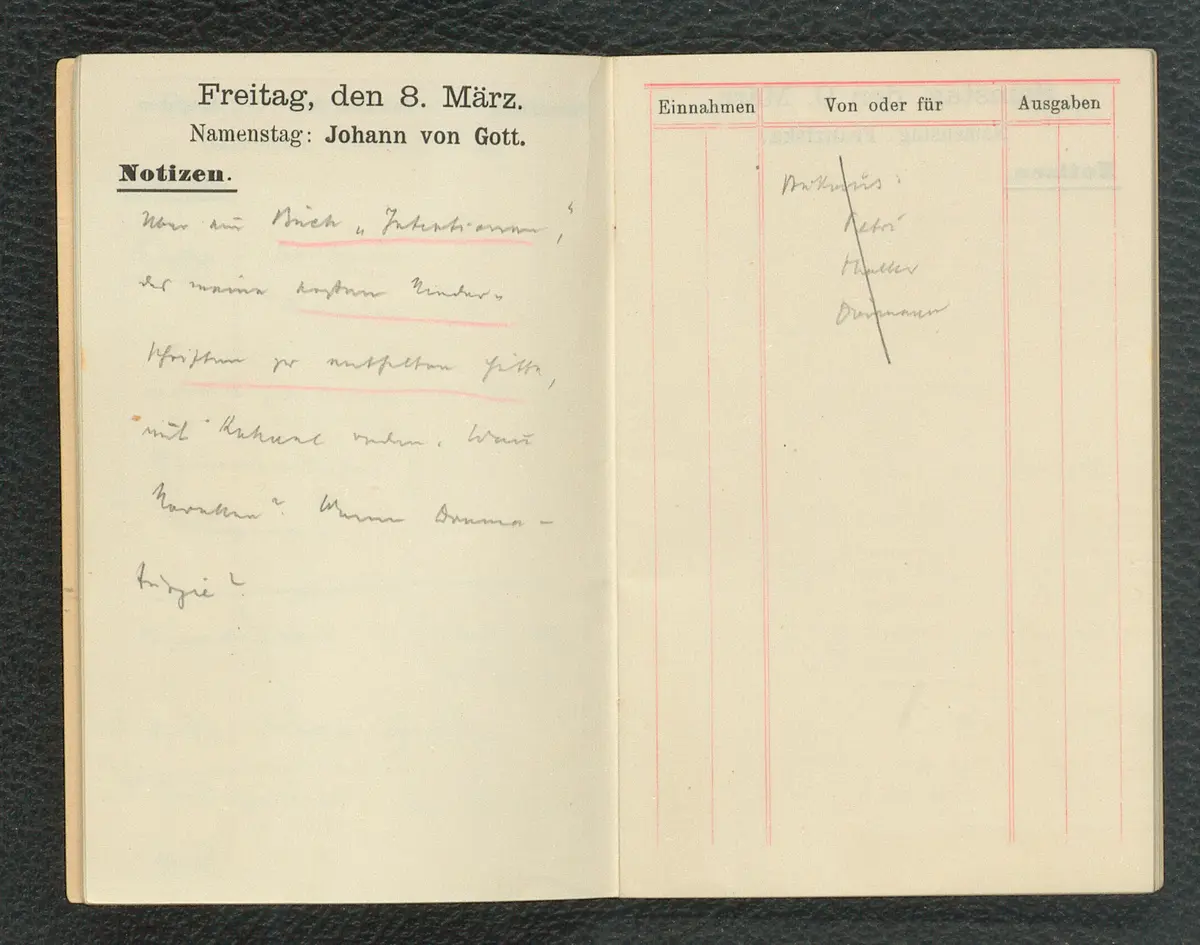 Freitag, den 8. März.
Namenstag: Johann von Gott.
Notizen.
Über ein Buch „Intentionen“,
das meine ersten Kinder-
schriften zu enthalten hätte,
mit reden. Wann
Novellen? Wann Drama-
turgie?
Einnahmen Von oder für Ausgaben
Petri
Müller